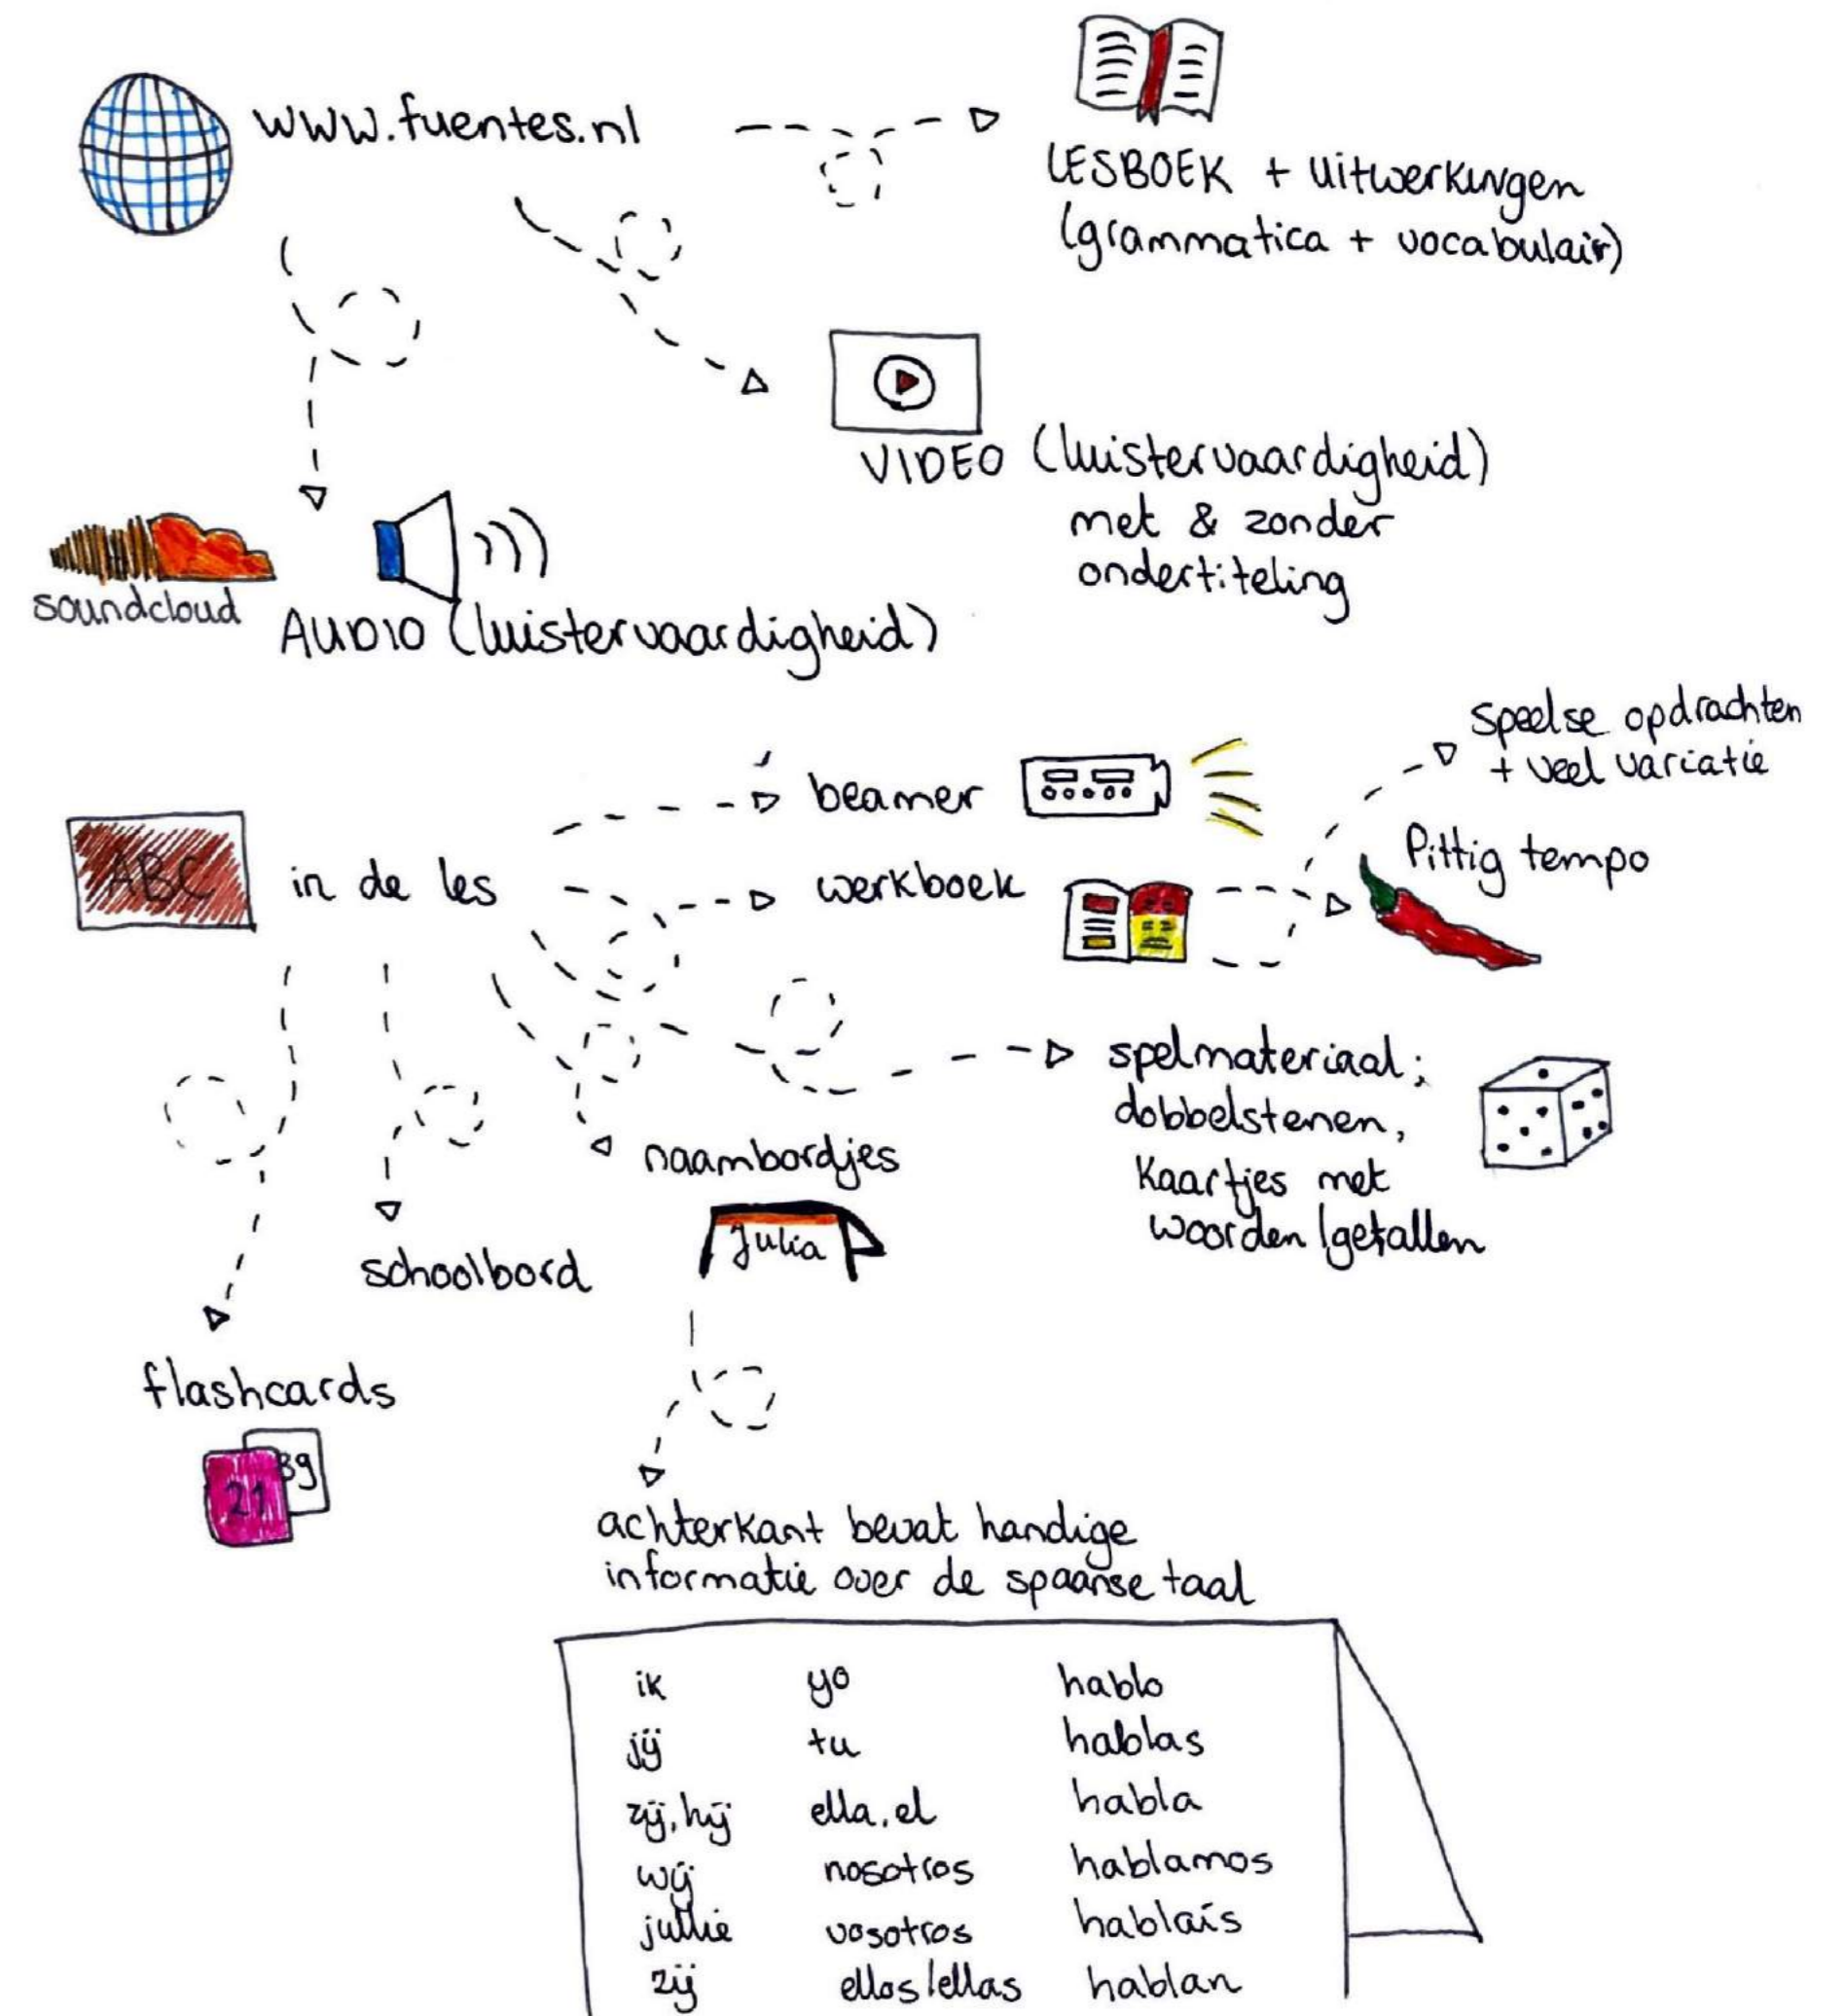 www.fuentes.nl
LESBOEK + Uitwerkingen
(grammatica + vocabulair)
VIDEO (luistervaardigheid)
met & zonder
ondertiteling
soundcloud
AUDIO (luistervaardigheid)
speelse opdrachten
+ veel variatie
beamer
Pittig tempo
ABC
in de les
werkboek
spelmateriaal;
dobbelstenen,
kaartjes met
woorden/getallen
naambordjes
Julia
schoolbord
flashcards
21
39
achterkant bevat handige
informatie over de spaanse taal
ik yo hablo
jij tu hablas
zij, hij ella, el habla
wij nosotros hablamos
jullie vosotros hablaís
zij ellos/ellas hablan